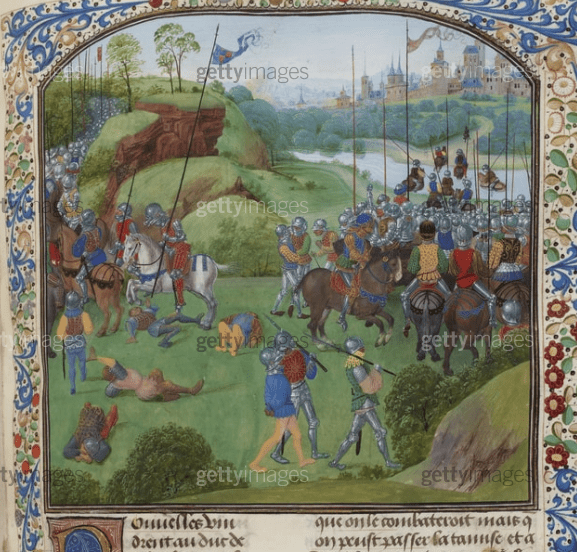 gettyimages gettyimages
gettyimages gettyimages
gettyimages gettyimages
gettyimages gettyimages
ouuelles vin
drent au duc de
que on le combateroit mais q
on peust passer la tamise et a